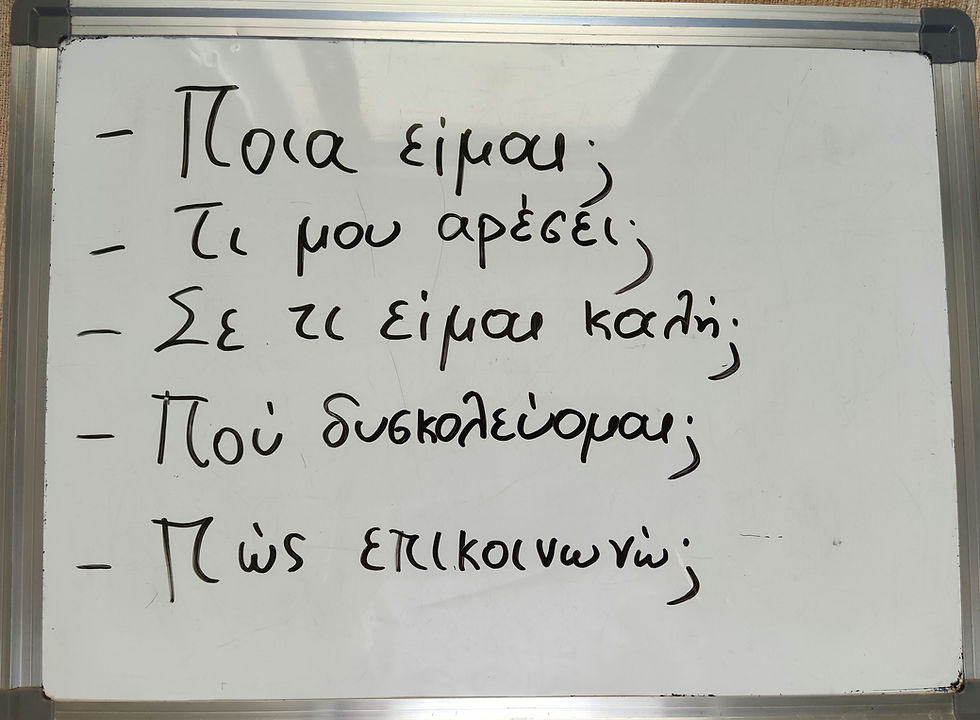 - Ποια είμαι;
- Τι μου αρέσει;
- Σε τι είμαι καλή;
- Πού δυσκολεύομαι;
- Πώς επικοινωνώ;